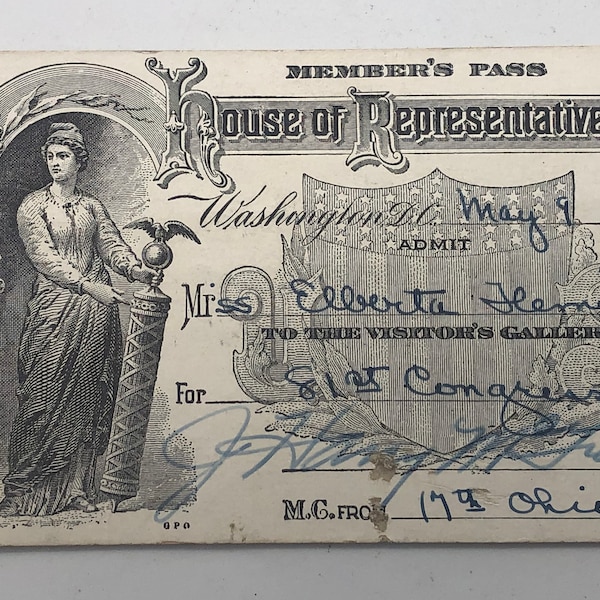 MEMBER'S PASS
House of Representative
Washington D.C. May 9
ADMIT
Miss Elberta
TO THE VISITOR'S GALLER
For 81st Congress
J. Harry
M.C. FROM 17th Ohio
GPO